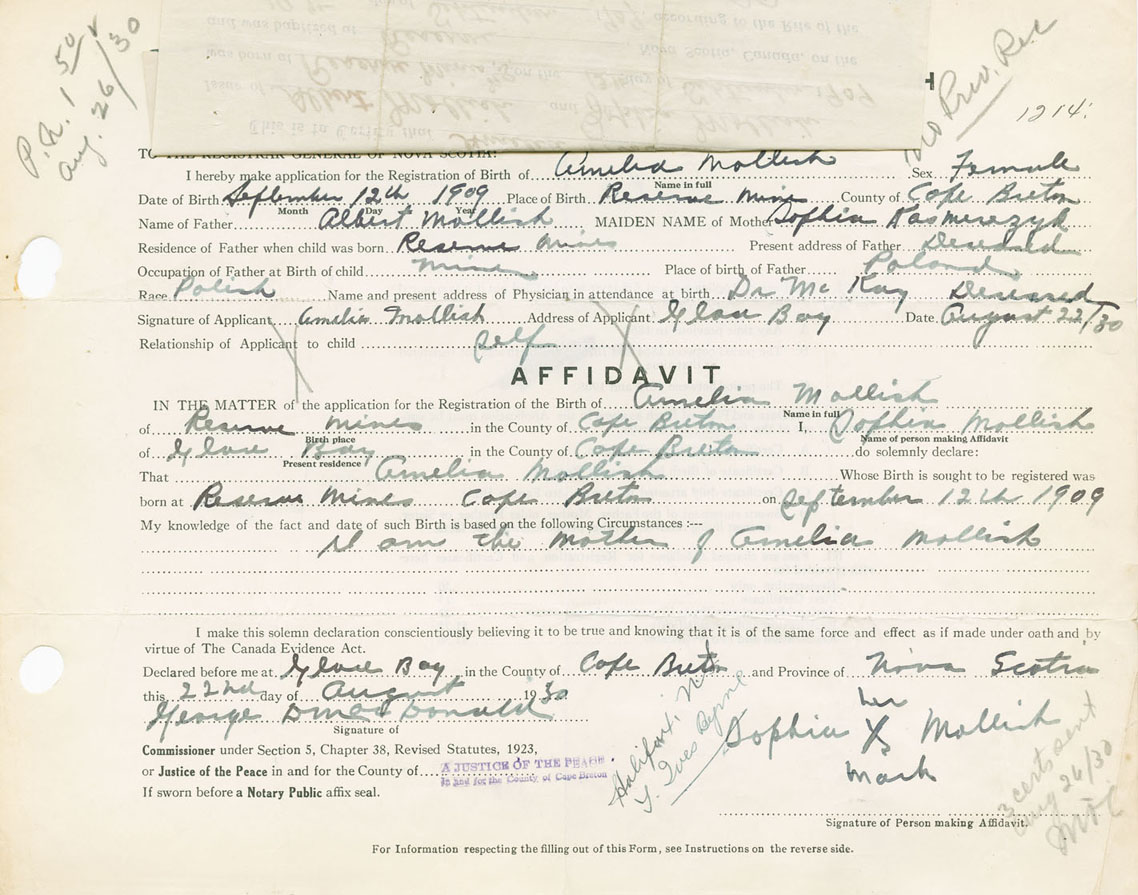 P.R. 1 50
Aug. 26/30
No Prev. Rec
1214.
This is to Certify that
Issue of Albert Mollish and Sophia Mollish
was born at Reserve Mines on the 12th day of September 1909
Nova Scotia, Canada, on the
and was baptized at Reserve
day of September 1909 according to the Rite of the
TO THE REGISTRAR GENERAL OF NOVA SCOTIA:
I hereby make application for the Registration of Birth of Amelia Mollish Sex Female
Name in full
Date of Birth September 12th 1909 Place of Birth Reserve Mine County of Cape Breton
Month Day Year
Name of Father Albert Mollish MAIDEN NAME of Mother Sophia Kasmerezyk
Residence of Father when child was born Reserve Mines Present address of Father Deseased
Occupation of Father at Birth of child Miner Place of birth of Father Poland
Race Polish Name and present address of Physician in attendance at birth Dr Mc Kay Deseased
Signature of Applicant Amelia Mollish Address of Applicant Glace Bay Date August 22/30
Relationship of Applicant to child self
AFFIDAVIT
IN THE MATTER of the application for the Registration of the Birth of Amelia Mollish
Name in full
of Reserve Mines in the County of Cape Breton I, Sophia Mollish
Birth place Name of person making Affidavit
of Glace Bay in the County of Cape Breton do solemnly declare:
Present residence
That Amelia Mollish Whose Birth is sought to be registered was
born at Reserve Mines Cape Breton on September 12th 1909
My knowledge of the fact and date of such Birth is based on the following Circumstances :---
I am the Mother of Amelia Mollish
I make this solemn declaration conscientiously believing it to be true and knowing that it is of the same force and effect as if made under oath and by
virtue of The Canada Evidence Act.
Declared before me at Glace Bay in the County of Cape Breton and Province of Nova Scotia
this 22nd day of August 1930
George D MacDonald
Signature of
Sophia her X mark Mollish
Commissioner under Section 5, Chapter 38, Revised Statutes, 1923,
or Justice of the Peace in and for the County of
A JUSTICE OF THE PEACE
In and for the County of Cape Breton
If sworn before a Notary Public affix seal.
Halifax, N.S.
Y. Ives Byrne
3 certs sent
Aug 26/30
Signature of Person making Affidavit.
For Information respecting the filling out of this Form, see Instructions on the reverse side.